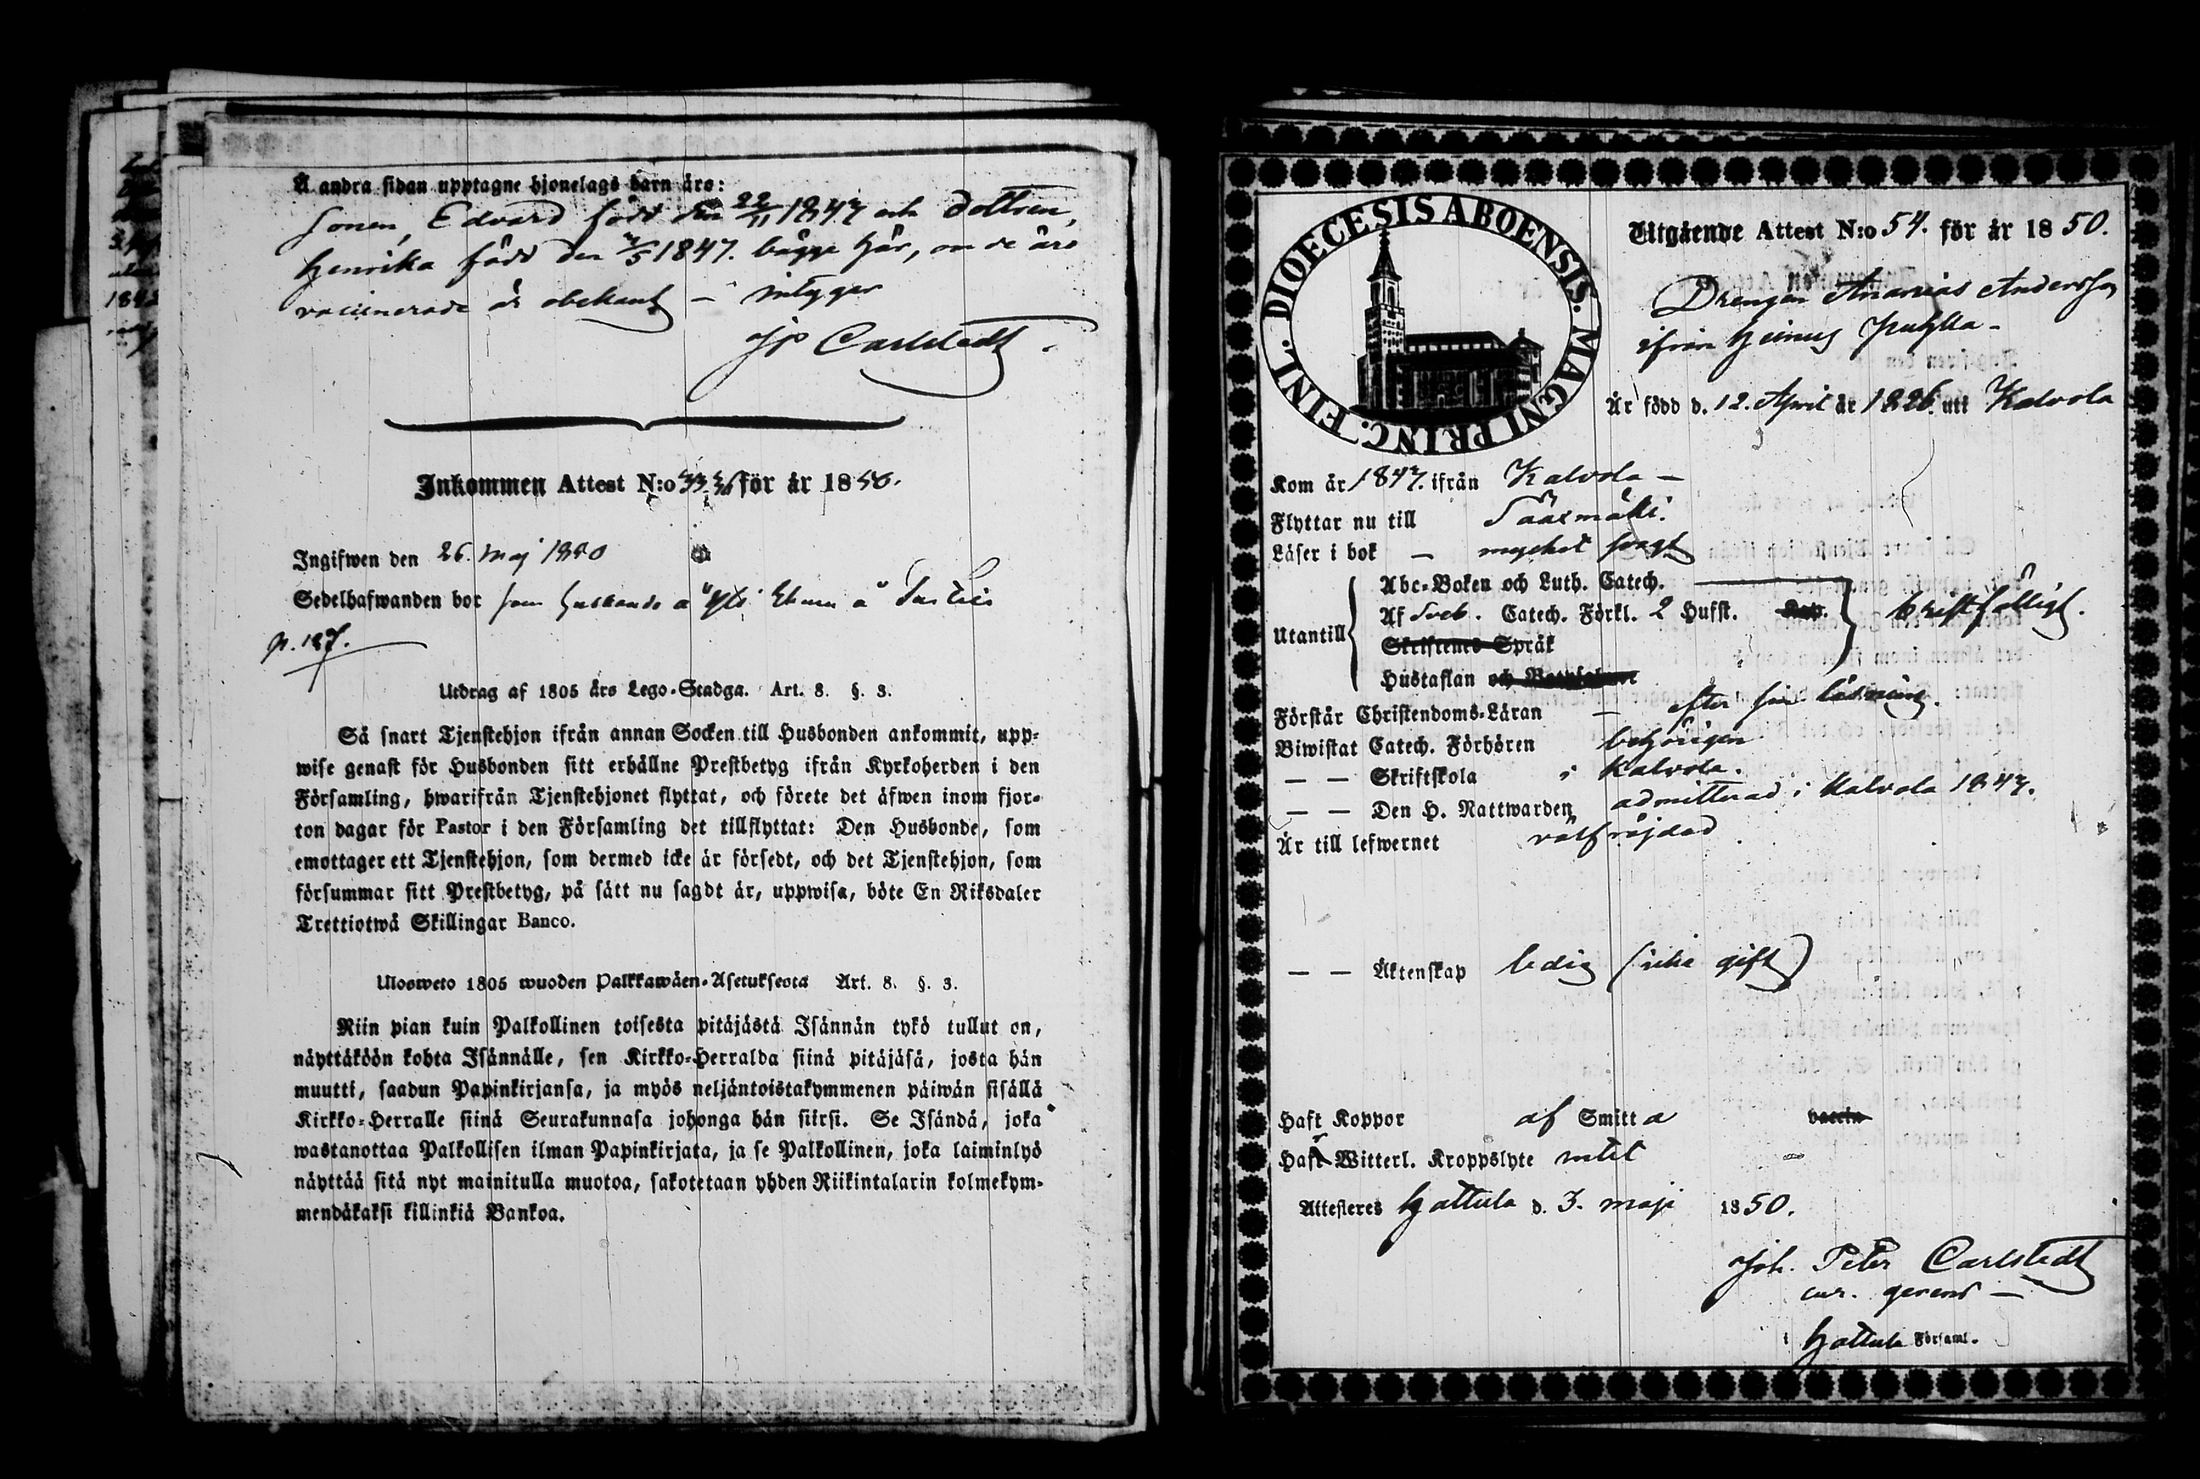 Å andra sidan upptagne hjonelags barn äro:
Sonen, Edvard född den 22/11 1847 och dottren,
Henrika född den 4/5 1847. bägge här, om de äro
vaccinerade är obekant — intygar
JP Carlstedt.
Inkommen Attest N:o för år 1850.
Ingifwen den 26. Maj 1850
Sedelhafwanden bor som husbonde å
p. 187.
Utdrag af 1805 års Lego-Stadga. Art. 8. §. 3.
Så snart Tjenstehjon ifrån annan Socken till Husbonden ankommit, upp-
wise genast för Husbonden sitt erhållne Prestbetyg ifrån Kyrkoherden i den
Församling, hwarifrån Tjenstehjonet flyttat, och förete det äfwen inom fjor-
ton dagar för Pastor i den Församling det tillflyttat: Den Husbonde, som
emottager ett Tjenstehjon, som dermed icke är försedt, och det Tjenstehjon, som
försummar sitt Prestbetyg, på sätt nu sagdt är, uppwisa, böte En Riksdaler
Trettiotwå Skillingar Banco.
Ulosweto 1805 wuoden Palkkawäen-Asetuksesta Art. 8. §. 3.
Niin pian kuin Palkollinen toisesta pitäjästä Isännän tykö tullut on,
näyttäköön kohta Isännälle, sen Kirkko-Herralda siinä pitäjäsä, josta hän
muutti, saadun Papinkirjansa, ja myös neljäntoistakymmenen päiwän sisällä
Kirkko-Herralle siinä Seurakunnasa johonga hän siirsi. Se Isändä, joka
wastanottaa Palkollisen ilman Papinkirjata, ja se Palkollinen, joka laiminlyö
näyttää sitä nyt mainitulla muotoa, sakotetaan yhden Riikintalarin kolmekym-
mendäkaksi killinkiä Bankoa.
DIOECESIS ABOENSIS. MAGNI PRINC. FINL.
Utgående Attest N:o 54. för år 1850.
Drengen Ananias Andersson
ifrån
Är född d. 12. April år 1826 uti Kalvola
Kom år 1847. ifrån Kalvola —
Flyttar nu till Sääxmäki.
Läser i bok — mycket svagt
Utantill
Abc-Boken och Luth. Catech.
Af Sveb. Catech. Förkl. 2 Hufst. Kap. bristfälligt.
Skriftenes Språk
Hustaflan och
Förstår Christendoms-Läran — efter sin läsning.
Biwistat Catech. Förhören behörigen
— — Skriftskola i Kalvola.
— — Den H. Nattwarden admitterad i Kalvola 1847.
Är till lefwernet välfräjdad
— — Äktenskap ledig (icke gift)
Haft Koppor af Smitta vaccin
Haft Witterl. Kroppslyte intet
Attesteres Hattula d. 3. maji 1850.
Joh. Peter Carlstedt
cur. gerens —
i Hattula Församl.